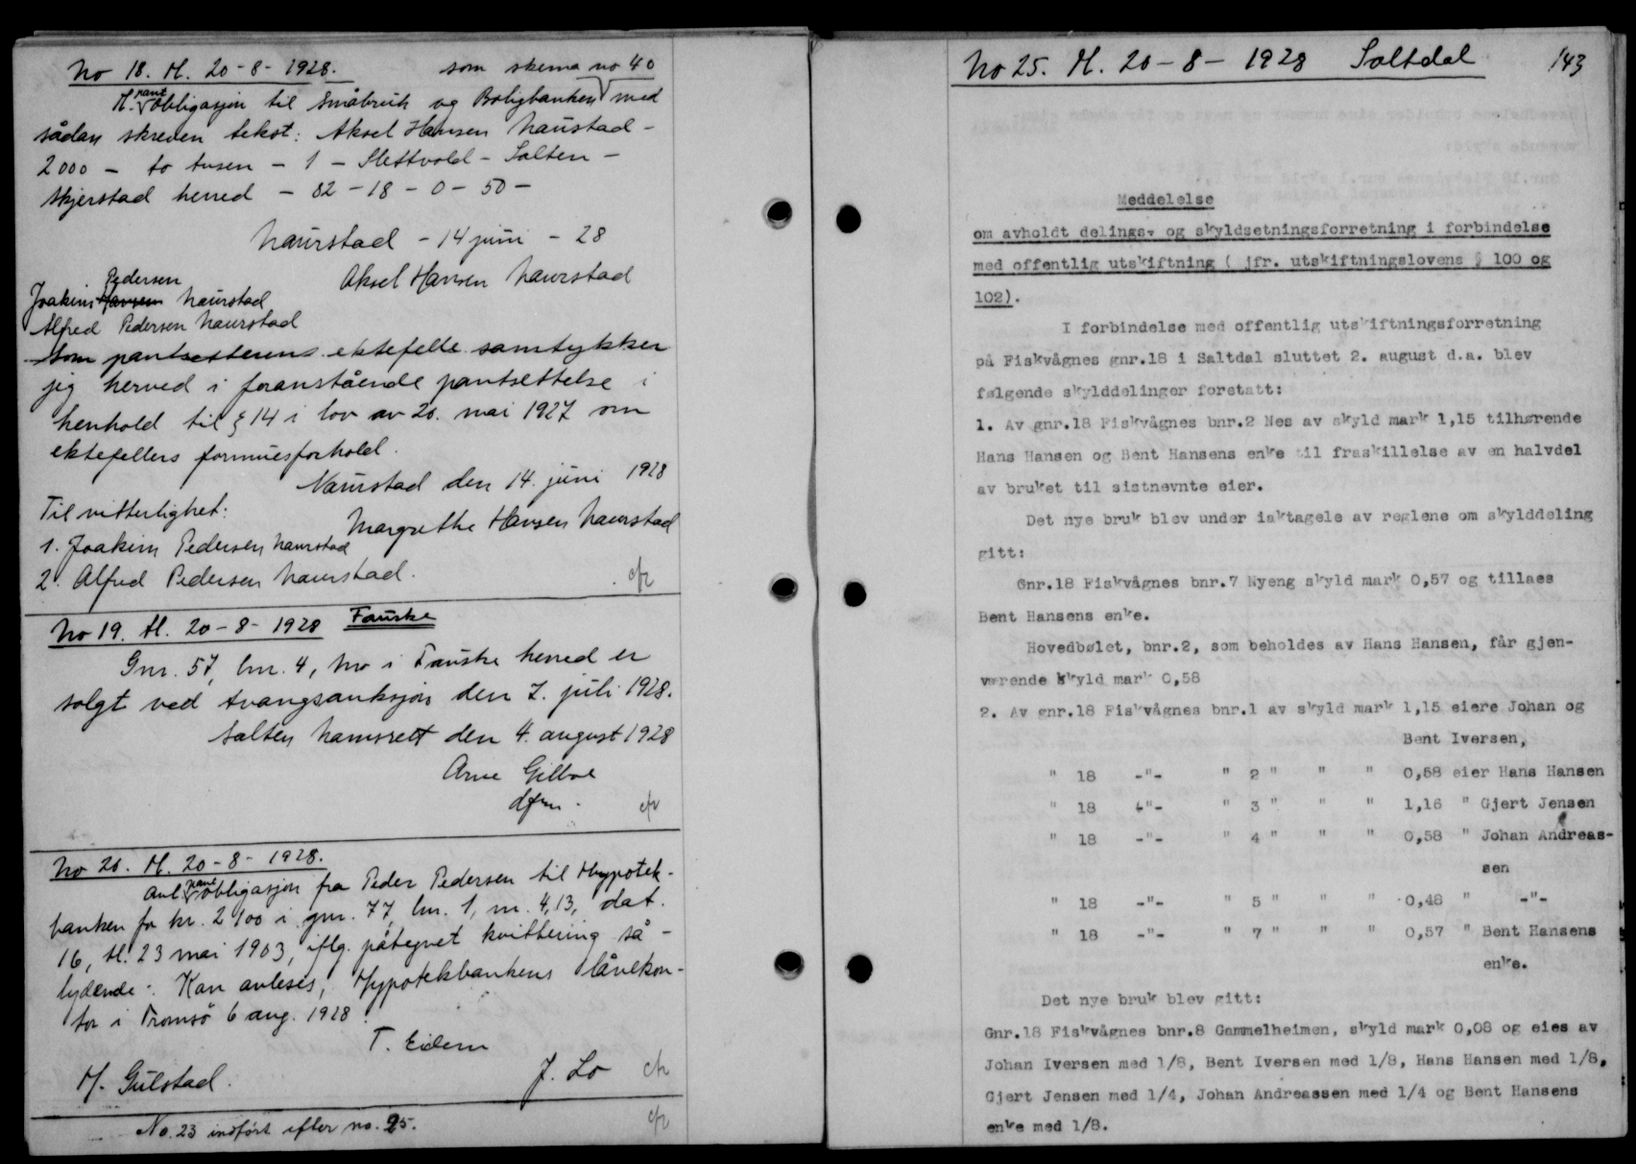 No 18. tl. 20-8-1928. som skema no 40
tl. pantobligasjon til Småbruk og Boligbanken med
sådan skreven tekst: Aksel Hansen Naustad-
2000 - to tusen - 1 - Slettvold - Salten -
Skjerstad herred - 82 - 18 - 0 - 50 -
Naurstad - 14 juni - 28
Aksel Hansen Naurstad
Pedersen
Joakim Hansen Naurstad
Alfred Pedersen Naurstad
Som pantsetterens ektefelle samtykker
jeg herved i foranstående pantsettelse i
henhold til § 14 i lov av 20. mai 1927 om
ektefellers formuesforhold.
Naurstad den 14. juni 1928
Til vitterlighet:
Margrethe Hansen Naurstad
1. Joakim Pedersen Naurstad
2. Alfred Pedersen Naurstad.
No 19. tl. 20-8-1928 Fauske
Gnr. 57, bnr. 4, Mo i Fauske herred er
solgt ved tvangsauksjon den 7. juli 1928.
Salten namsrett den 4. august 1928
Arne Gilboe
dfm.
No 20. tl. 20-8-1928.
Avl. pantobligasjon fra Peder Pedersen til Hypotek-
banken for kr. 2100 i gnr. 77, bnr. 1, m. 4,13, dat.
16, tl. 23 mai 1903, iflg. påtegnet kvittering så-
lydende: Kan avleses, Hypotekbankens lånekon-
tor i Tromsö 6 aug. 1928.
T. Eidem
H. Gulstad. J. Lo
No. 23 innført efter no. 25.
No 25. tl. 20-8-1928 Saltdal 143
Meddelelse
om avholdt delings- og skyldsetningsforretning i forbindelse
med offentlig utskiftning ( jfr. utskiftningslovens § 100 og
102).
I forbindelse med offentlig utskiftningsforretning
på Fiskvågnes gnr.18 i Saltdal sluttet 2. august d.a. blev
følgende skylddelinger foretatt:
1. Av gnr.18 Fiskvågnes bnr.2 Nes av skyld mark 1,15 tilhørende
Hans Hansen og Bent Hansens enke til fraskillelse av en halvdel
av bruket til sistnevnte eier.
Det nye bruk blev under iaktagele av reglene om skylddeling
gitt:
Gnr.18 Fiskvågnes bnr.7 Nyeng skyld mark 0,57 og tillaes
Bent Hansens enke.
Hovedbølet, bnr.2, som beholdes av Hans Hansen, får gjen-
værende skyld mark 0,58
2. Av gnr.18 Fiskvågnes bnr.1 av skyld mark 1,15 eiere Johan og
Bent Iversen,
" 18 -"- " 2 " " " 0,58 eier Hans Hansen
" 18 -"- " 3 " " " 1,16 " Gjert Jensen
" 18 -"- " 4 " " " 0,58 " Johan Andreas-
sen
" 18 -"- " 5 " " " 0,48 " -"-
" 18 -"- " 7 " " " 0,57 " Bent Hansens
enke.
Det nye bruk blev gitt:
Gnr.18 Fiskvågnes bnr.8 Gammelheimen, skyld mark 0,08 og eies av
Johan Iversen med 1/8, Bent Iversen med 1/8, Hans Hansen med 1/8,
Gjert Jensen med 1/4, Johan Andreassen med 1/4 og Bent Hansens
enke med 1/8.